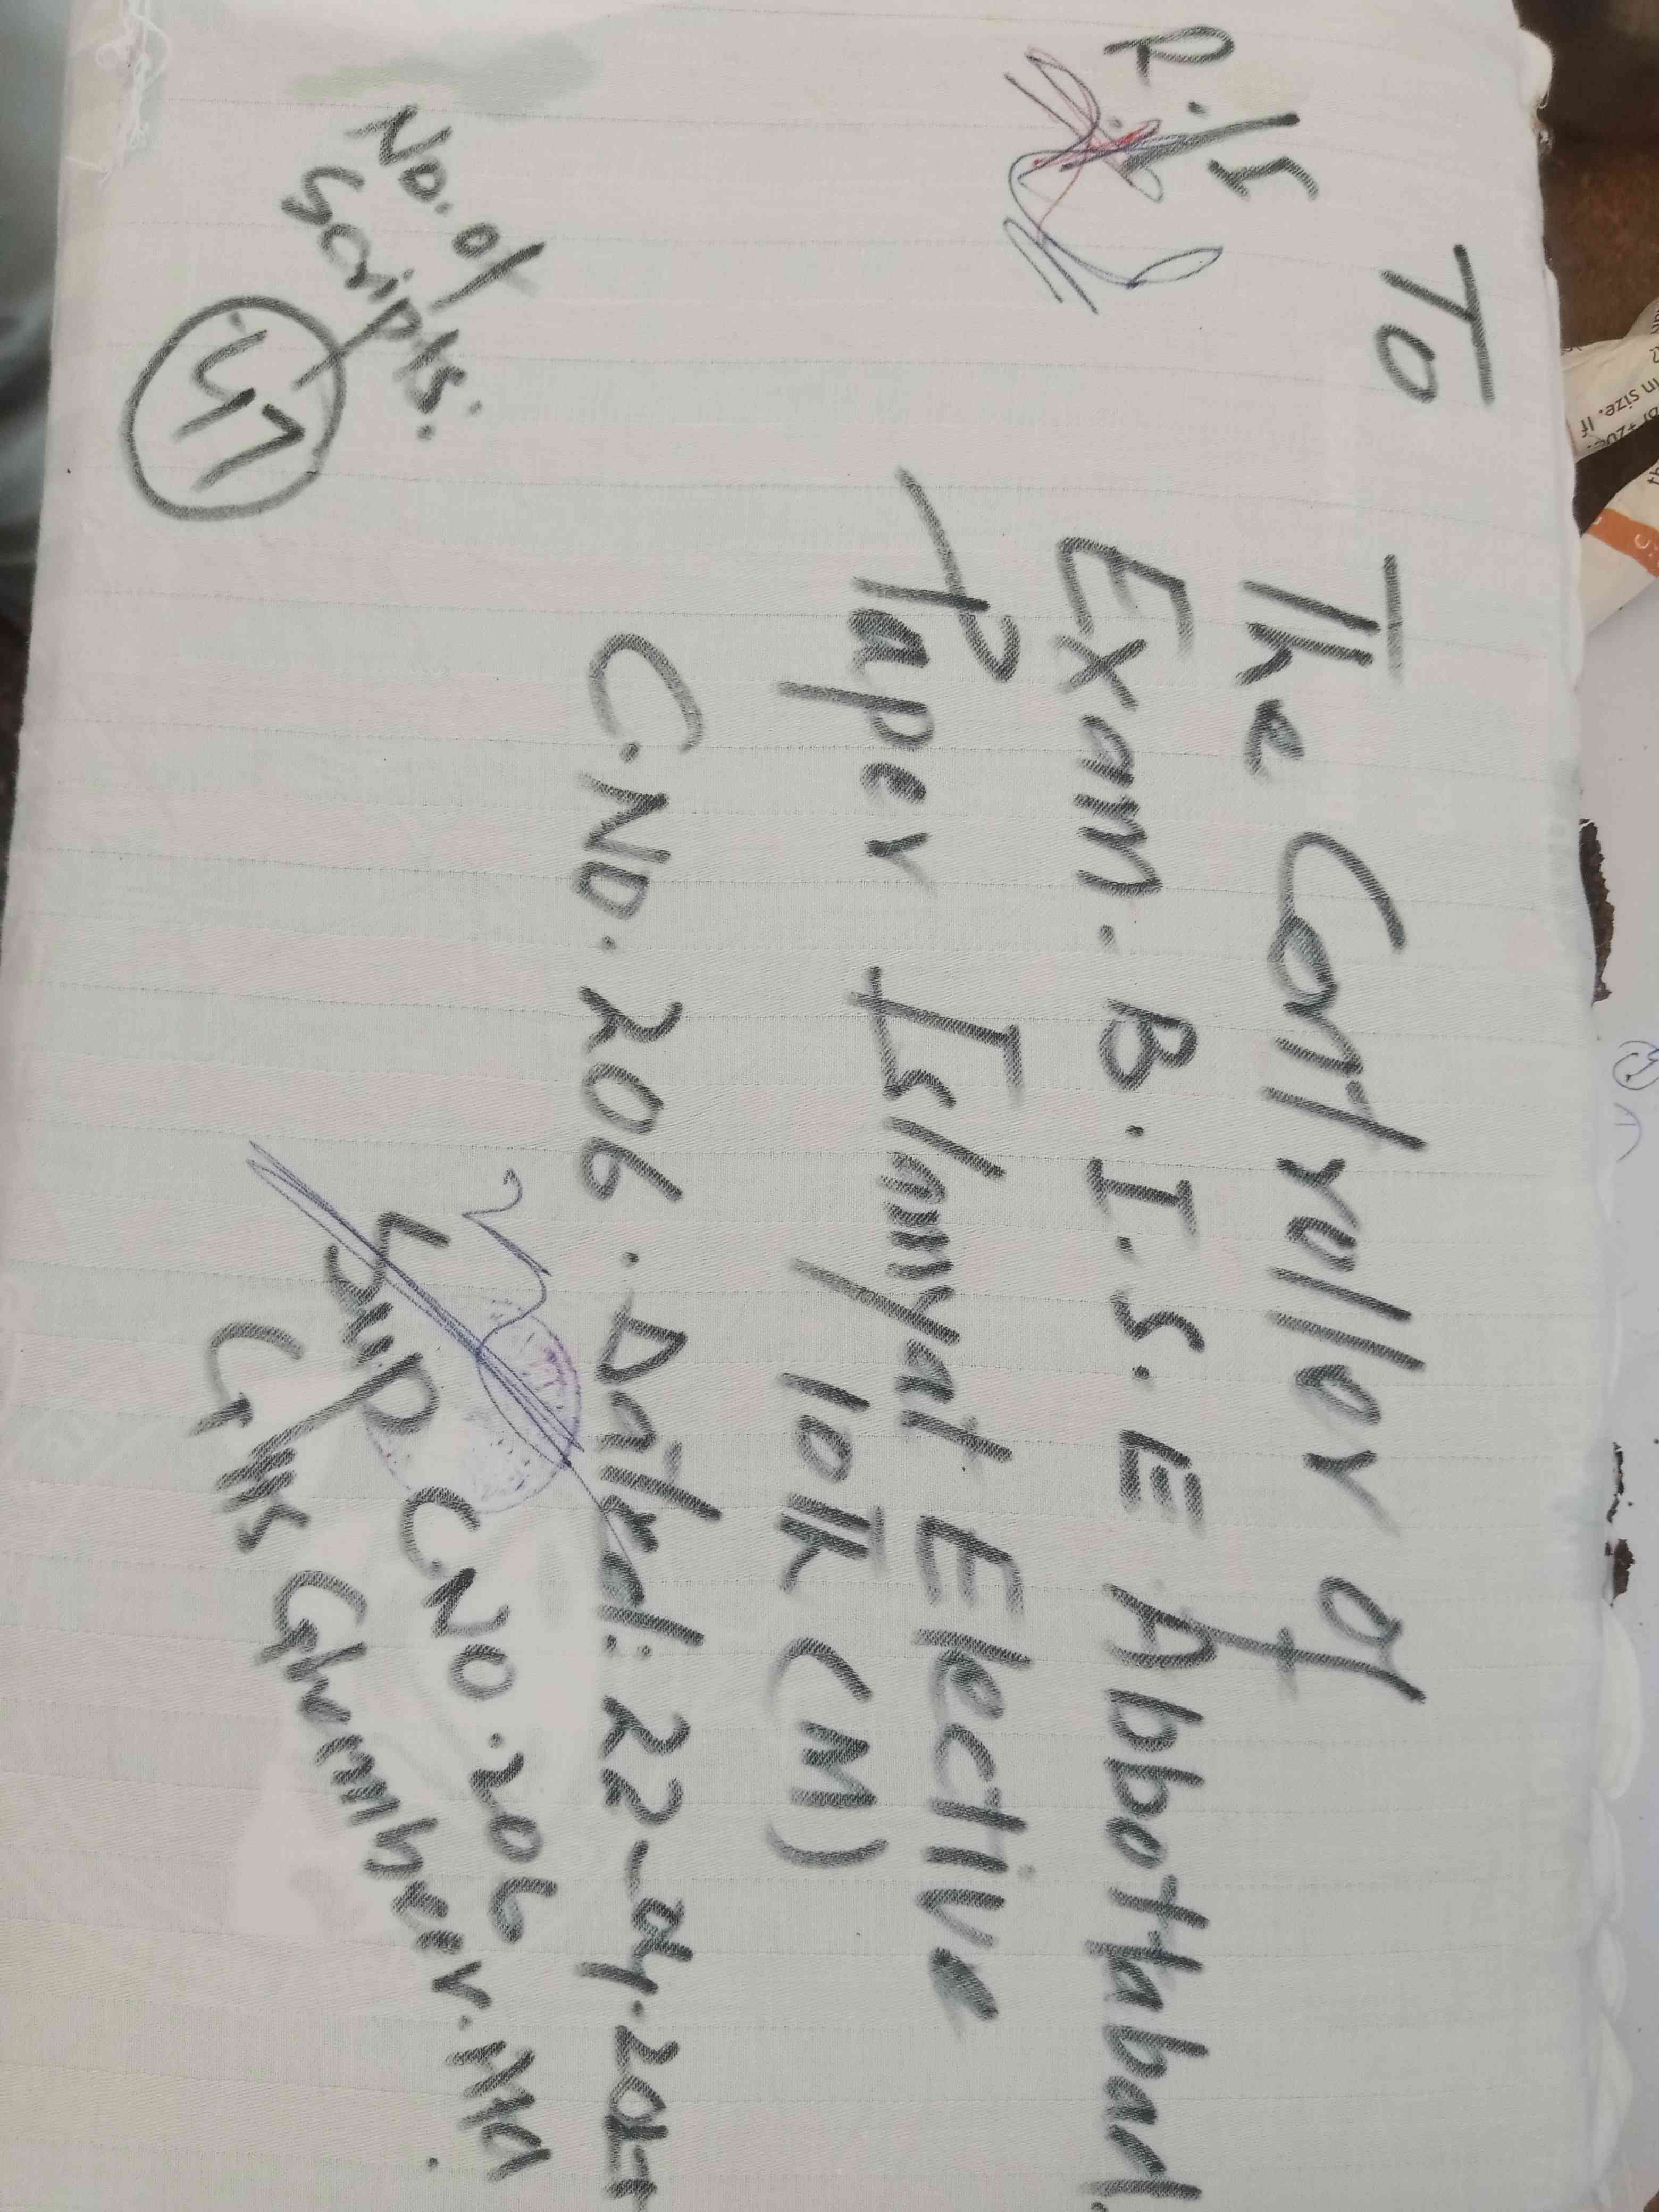 R.I.S
To
The Contruller of
Exam. B.I.S.E Abbottabad.
Paper Islamyat Elective
10th (M)
C.No. 206. Dated: 22-04-20
No. of
Scripts:
47
Sup C.No. 206
GHS Ghamber.